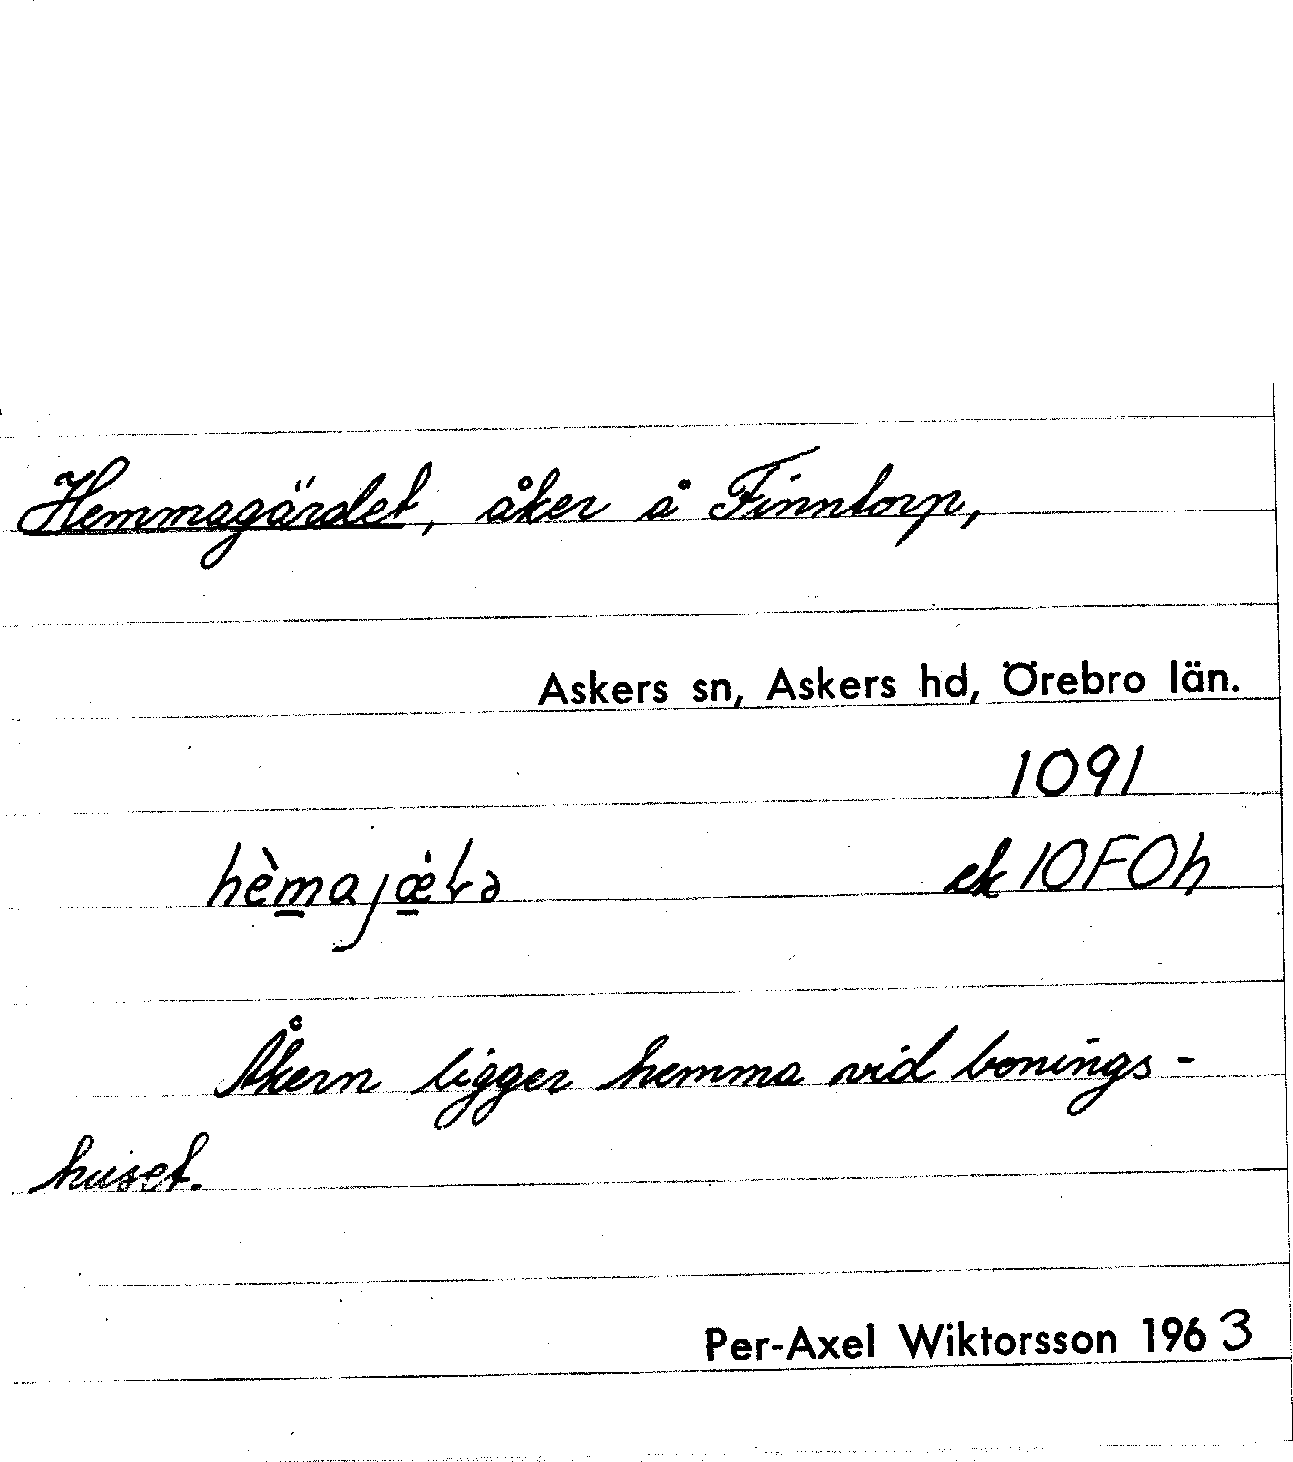 Hemmagärdet, åker å Finntorp,
Askers sn, Askers hd, Örebro län.
1091
ek 10F0h
Åkern ligger hemma vid bonings-
huset.
Per-Axel Wiktorsson 1963